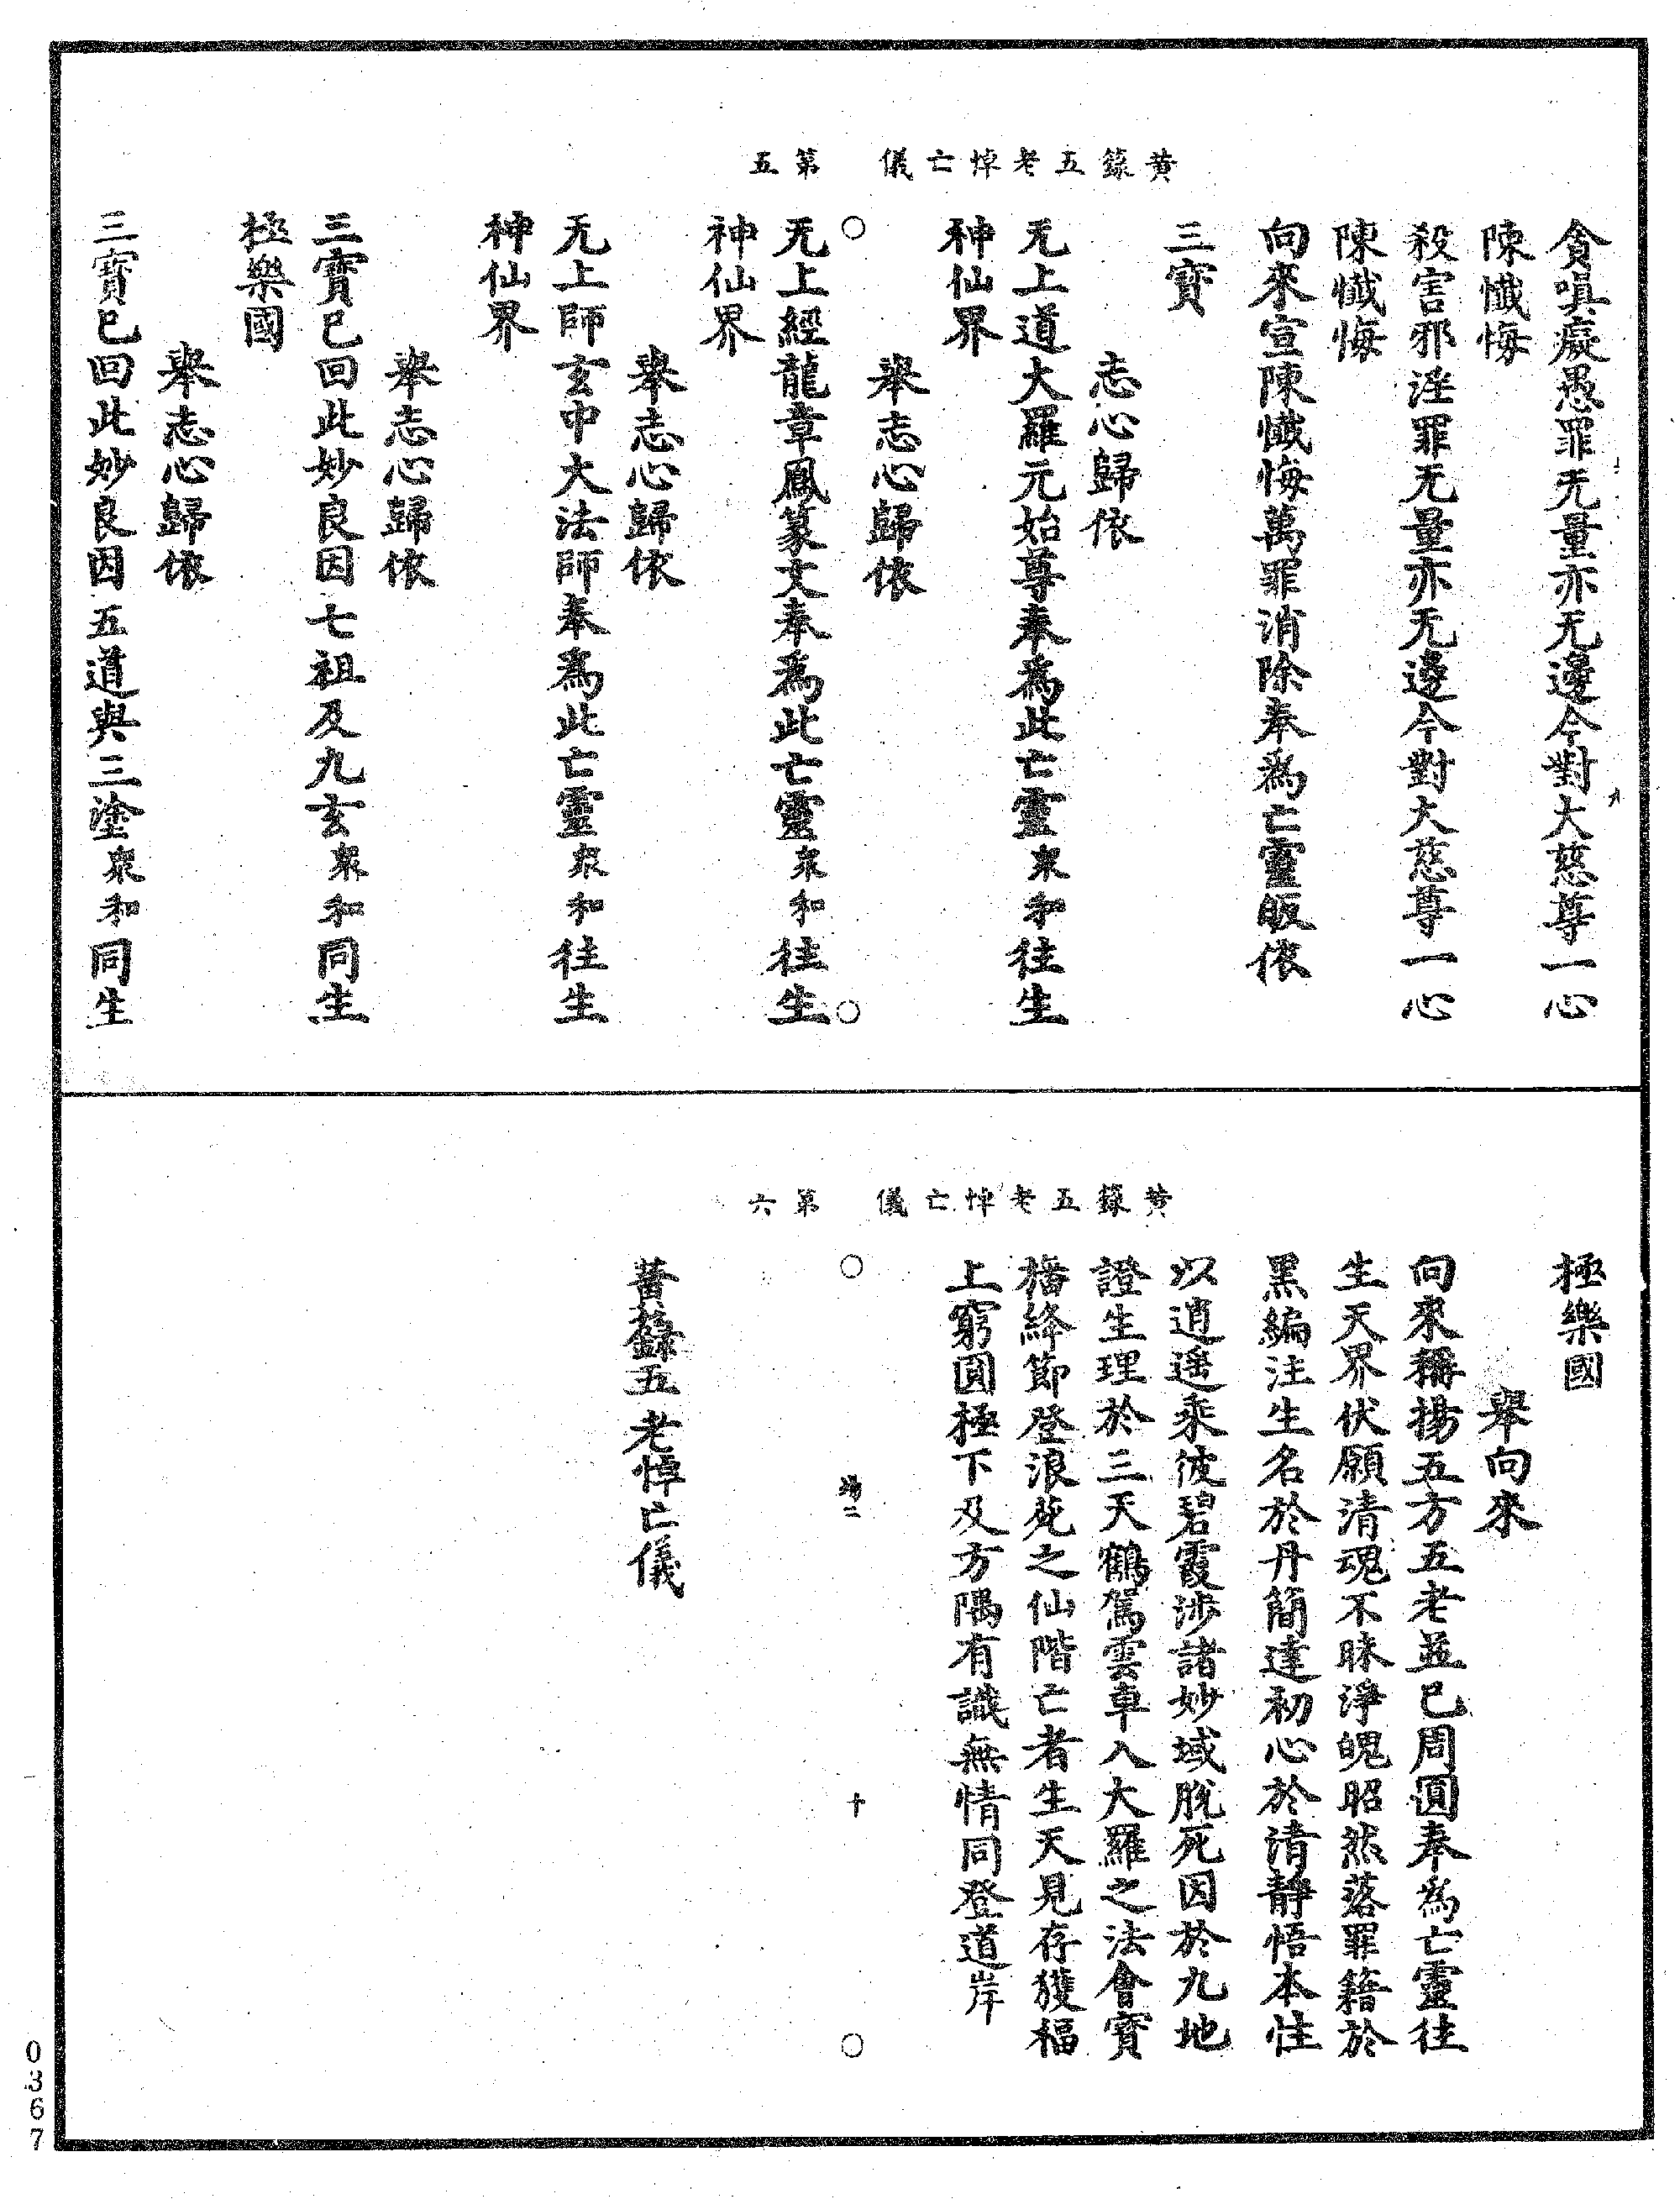 黄籙五老悼亡儀　第五
貪嗔癡愚罪无量亦无邊今對大慈尊一心
陳懺悔
殺害邪淫罪无量亦无邊今對大慈尊一心
陳懺悔
向來宣陳懺悔萬罪消除奉爲亡靈皈依
三寶
志心歸依
无上道大羅元始尊奉爲此亡靈衆和往生
神仙界
舉志心歸依
○　○
无上經龍章鳳篆文奉爲此亡靈衆和往生
神仙界
舉志心歸依
无上師玄中大法師奉爲此亡靈衆和往生
神仙界
舉志心歸依
三寶已回此妙良因七祖及九玄衆和同生
極樂國
舉志心歸依
三寶已回此妙良因五道與三塗衆和同生
黄籙五老悼亡儀　第六
極樂國
舉向來
向來稱揚五方五老並已周圓奉爲亡靈往
生天界伏願清魂不昧淨魄昭然落罪籍於
黑編注生名於丹簡達初心於清靜悟本性
以逍遥乘彼碧霞涉諸妙域脫死因於九地
證生理於三天鶴駕雲車入大羅之法會寶
旛絳節登浪苑之仙階亡者生天見存獲福
上窮圓極下及方隅有識無情同登道岸
○　二　十　○
黃籙五老悼亡儀
0367